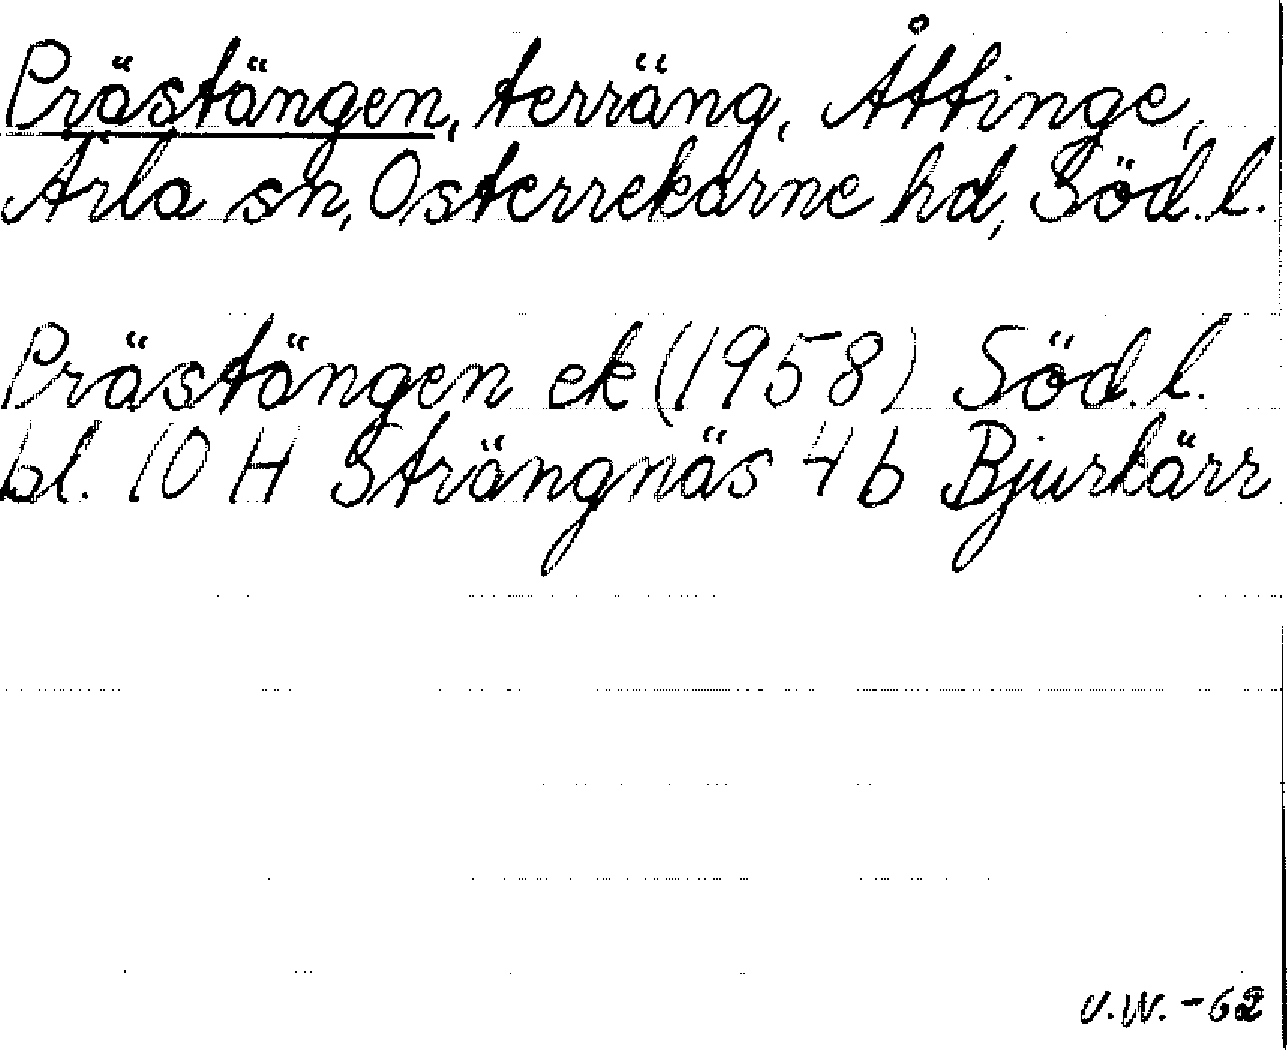 Prästängen, terräng, Åttinge,
Ärla sn, Österrekarne hd, Söd.l.
Prästängen ek (1958) Söd.l.
bl. 10 H Strängnäs 4 b Bjurkärr
V.W. -62